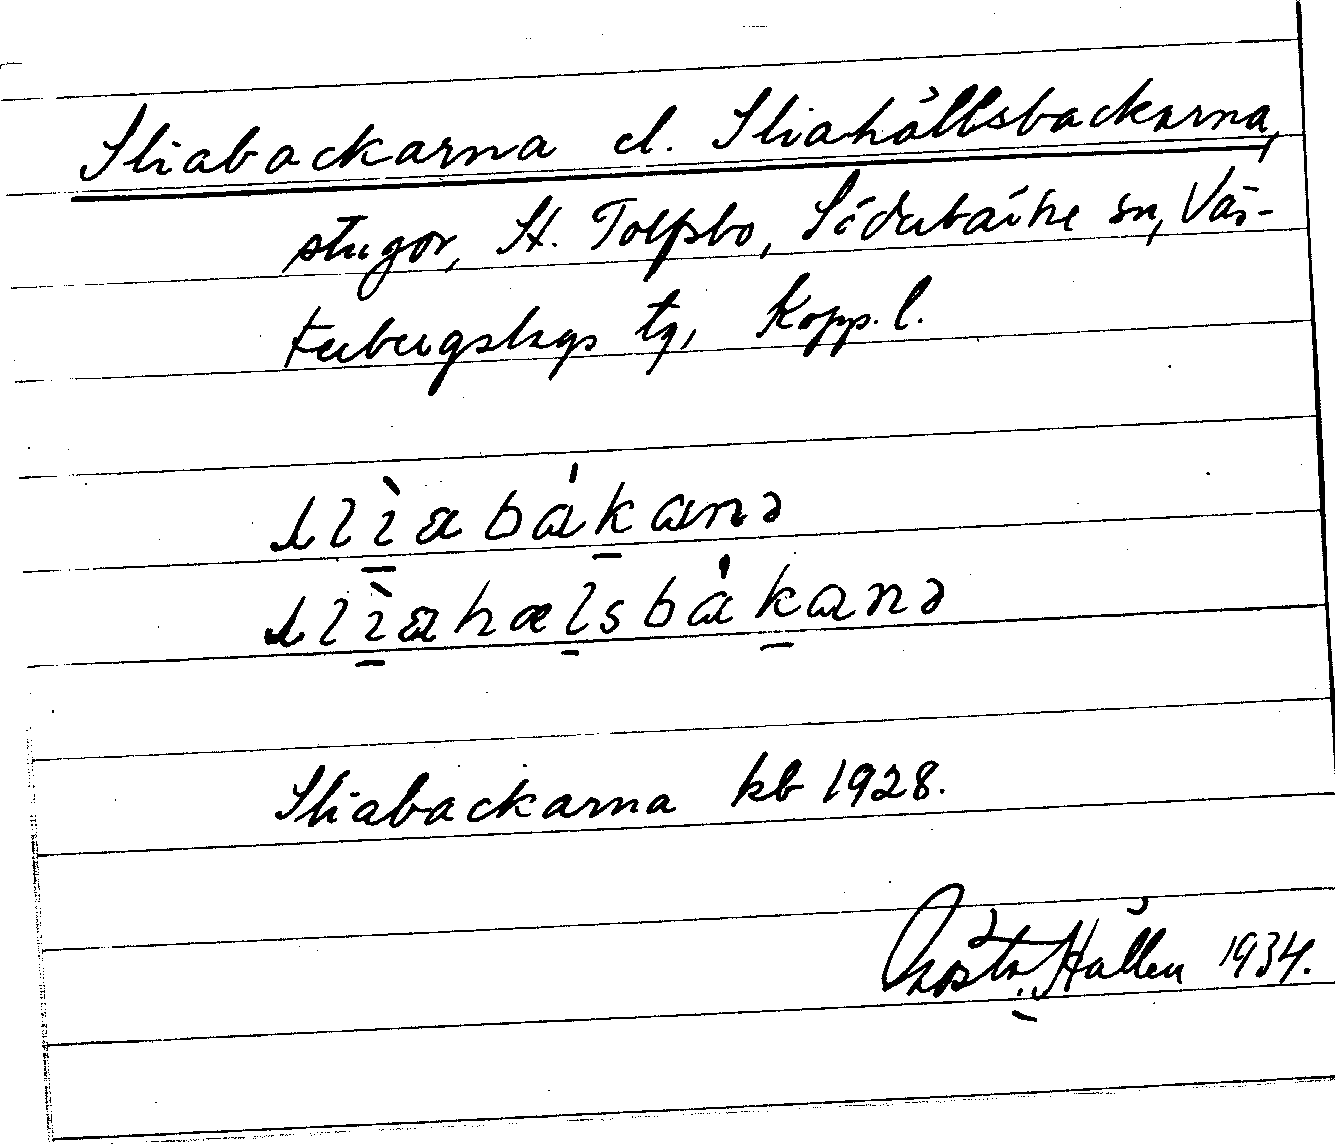 Sliabackarna el. Sliahällsbackarna,
stugor, St. Tolfsbo, Söderbärke sn, Väs-
terbergslags tg, Kopp. l.
slìabákanə
slìahælsbákanə
Sliabackarna kb 1928.
Gösta Hallén 1934.